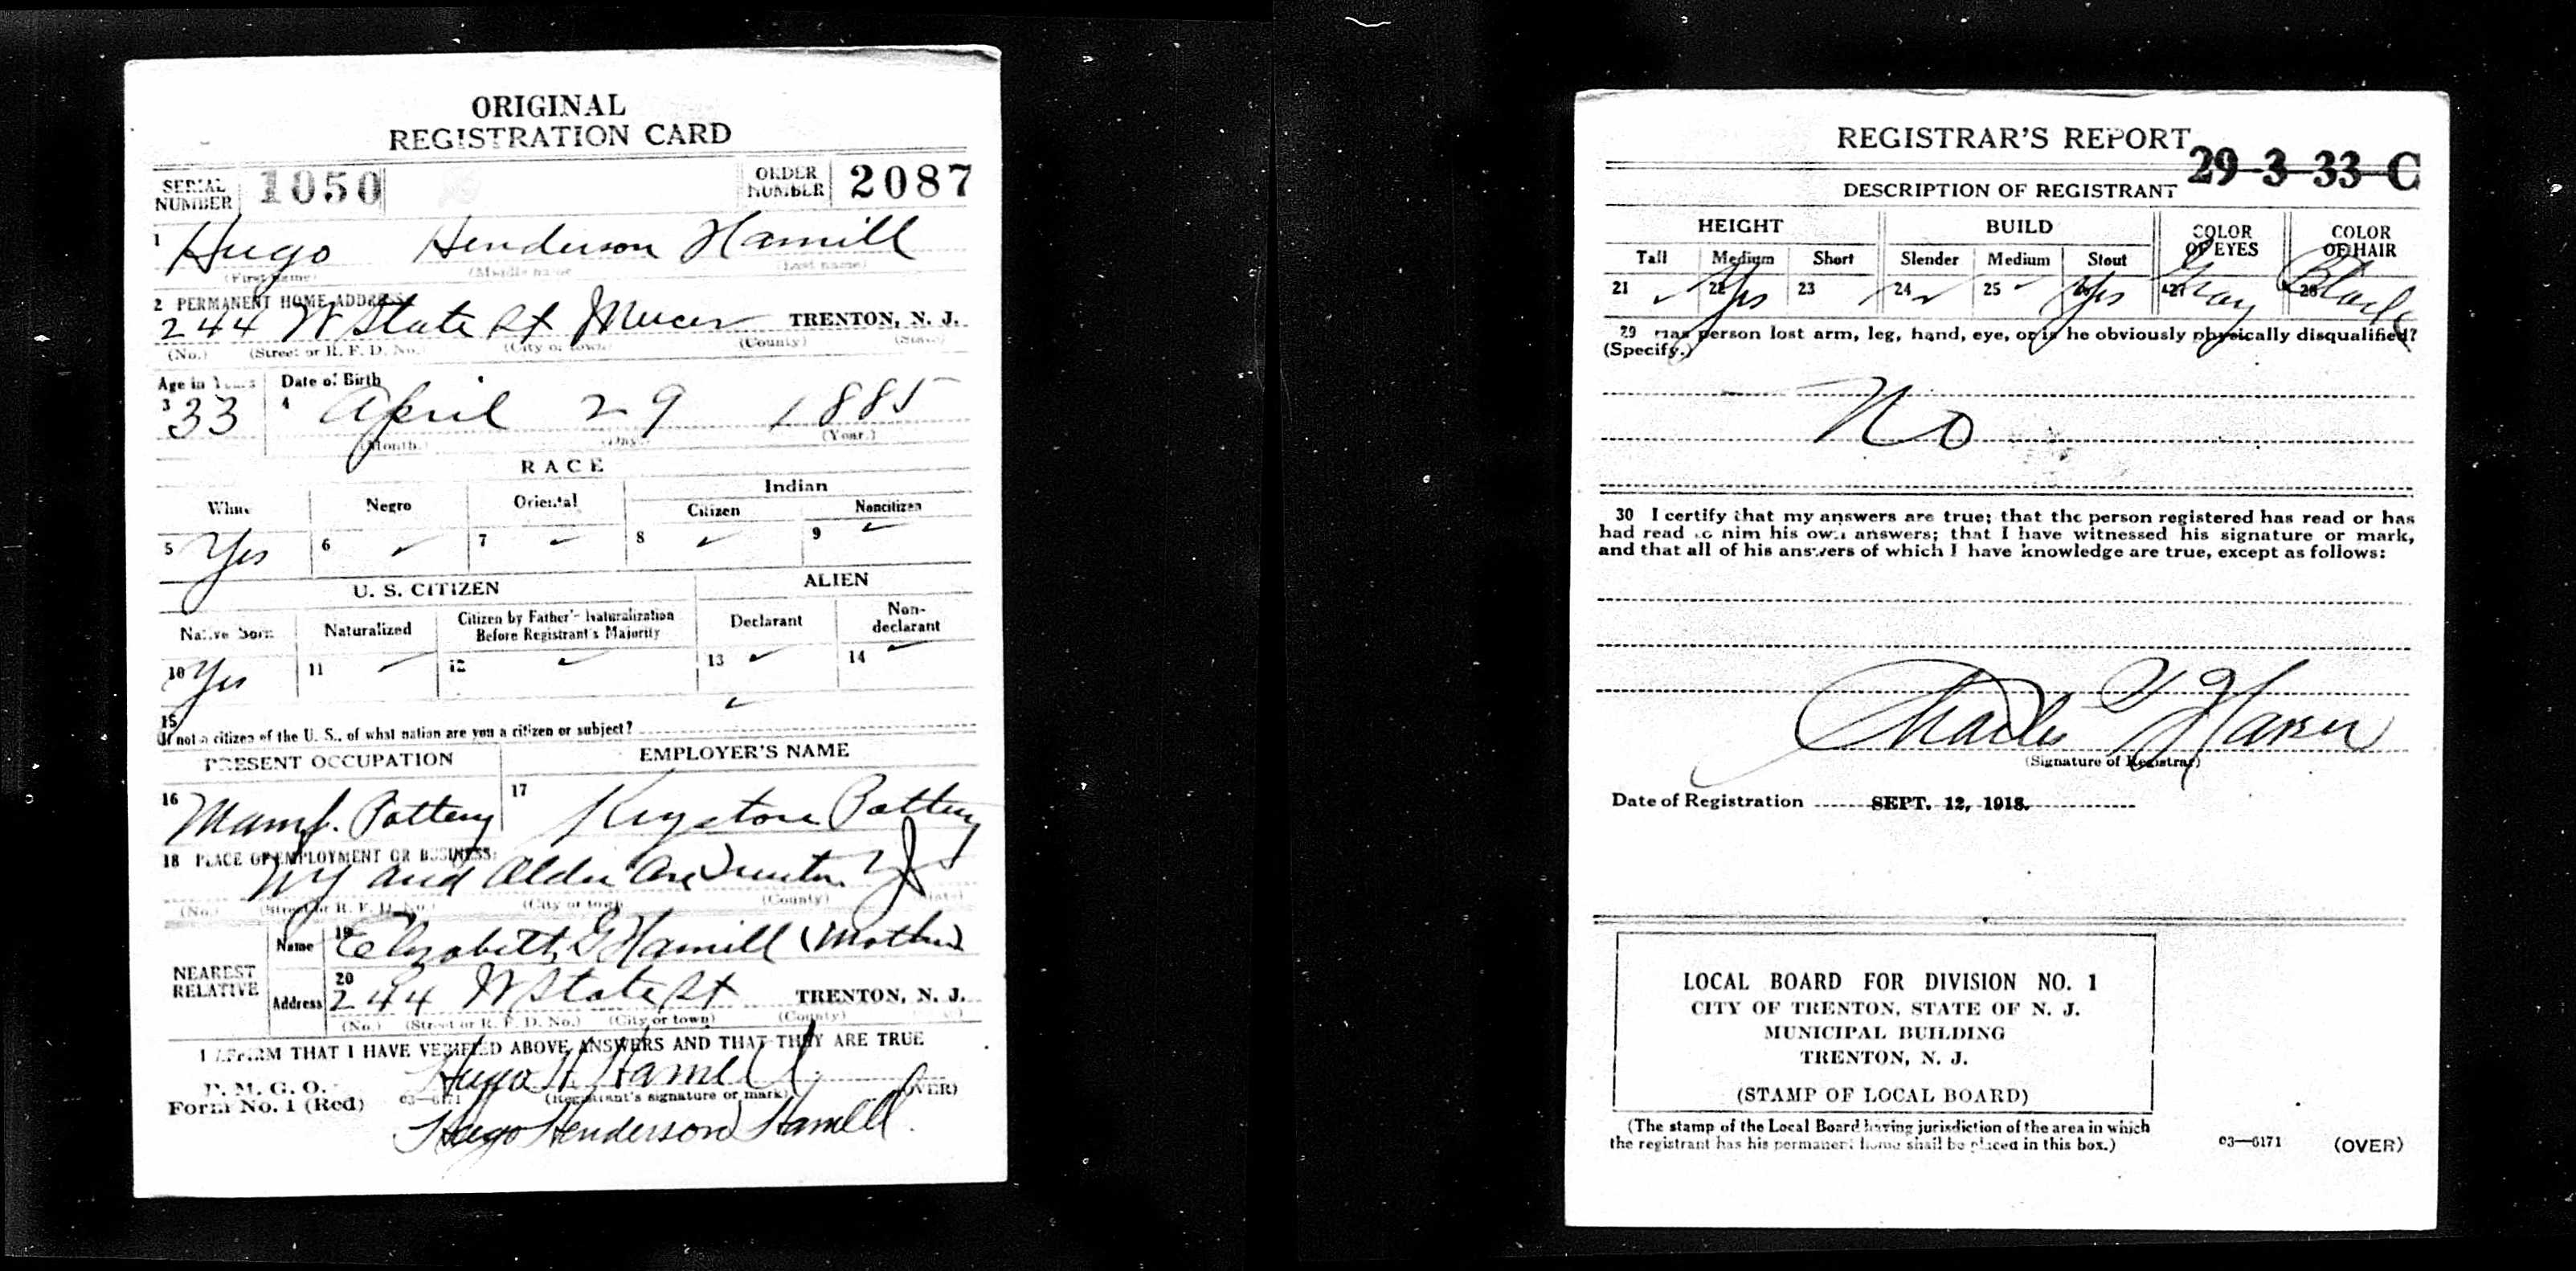 ORIGINAL
REGISTRATION CARD
SERIAL NUMBER 1050 ORDER NUMBER 2087
1 Hugo Henderson Hamill
(First name) (Middle name) (Last name)
2 PERMANENT HOME ADDRESS:
244 W State St Mercer TRENTON, N. J.
(No.) (Street or R. F. D. No.) (City or town) (County) (State)
Age in Years Date of Birth
3 33 4 April 29 1885
(Month.) (Day.) (Year.)
RACE
White Negro Oriental Indian
Citizen Noncitizen
5 Yes 6 ✓ 7 ✓ 8 ✓ 9 ✓
U. S. CITIZEN ALIEN
Native Born Naturalized Citizen by Father's Naturalization Before Registrant's Majority Declarant Non-declarant
10 Yes 11 ✓ 12 ✓ 13 ✓ 14 ✓
15 ✓
If not a citizen of the U. S., of what nation are you a citizen or subject?
PRESENT OCCUPATION EMPLOYER'S NAME
16 Manf. Pottery 17 Keystone Pottery
18 PLACE OF EMPLOYMENT OR BUSINESS:
NY and Alden Ave Trenton NJ
(No.) (Street or R. F. D. No.) (City or town) (County) (State)
NEAREST RELATIVE
Name 19 Elizabeth G Hamill (Mother)
Address 20 244 W State St TRENTON, N. J.
(No.) (Street or R. F. D. No.) (City or town) (County) (State)
I AFFIRM THAT I HAVE VERIFIED ABOVE ANSWERS AND THAT THEY ARE TRUE
P. M. G. O.
Form No. 1 (Red) 03—6171 Hugo H Hamill (Registrant's signature or mark) (OVER)
Hugo Henderson Hamill
REGISTRAR'S REPORT
29-3-33-C
DESCRIPTION OF REGISTRANT
HEIGHT BUILD COLOR OF EYES COLOR OF HAIR
Tall Medium Short Slender Medium Stout
21 ✓ 22 Yes 23 ✓ 24 ✓ 25 ✓ 26 Yes 27 Gray 28 Black
29 Has person lost arm, leg, hand, eye, or is he obviously physically disqualified?
(Specify.)
No
30 I certify that my answers are true; that the person registered has read or has
had read to him his own answers; that I have witnessed his signature or mark,
and that all of his answers of which I have knowledge are true, except as follows:
Charles
(Signature of Registrar)
Date of Registration SEPT. 12, 1918.
LOCAL BOARD FOR DIVISION NO. 1
CITY OF TRENTON, STATE OF N. J.
MUNICIPAL BUILDING
TRENTON, N. J.
(STAMP OF LOCAL BOARD)
(The stamp of the Local Board having jurisdiction of the area in which
the registrant has his permanent home shall be placed in this box.)
03—6171 (OVER)